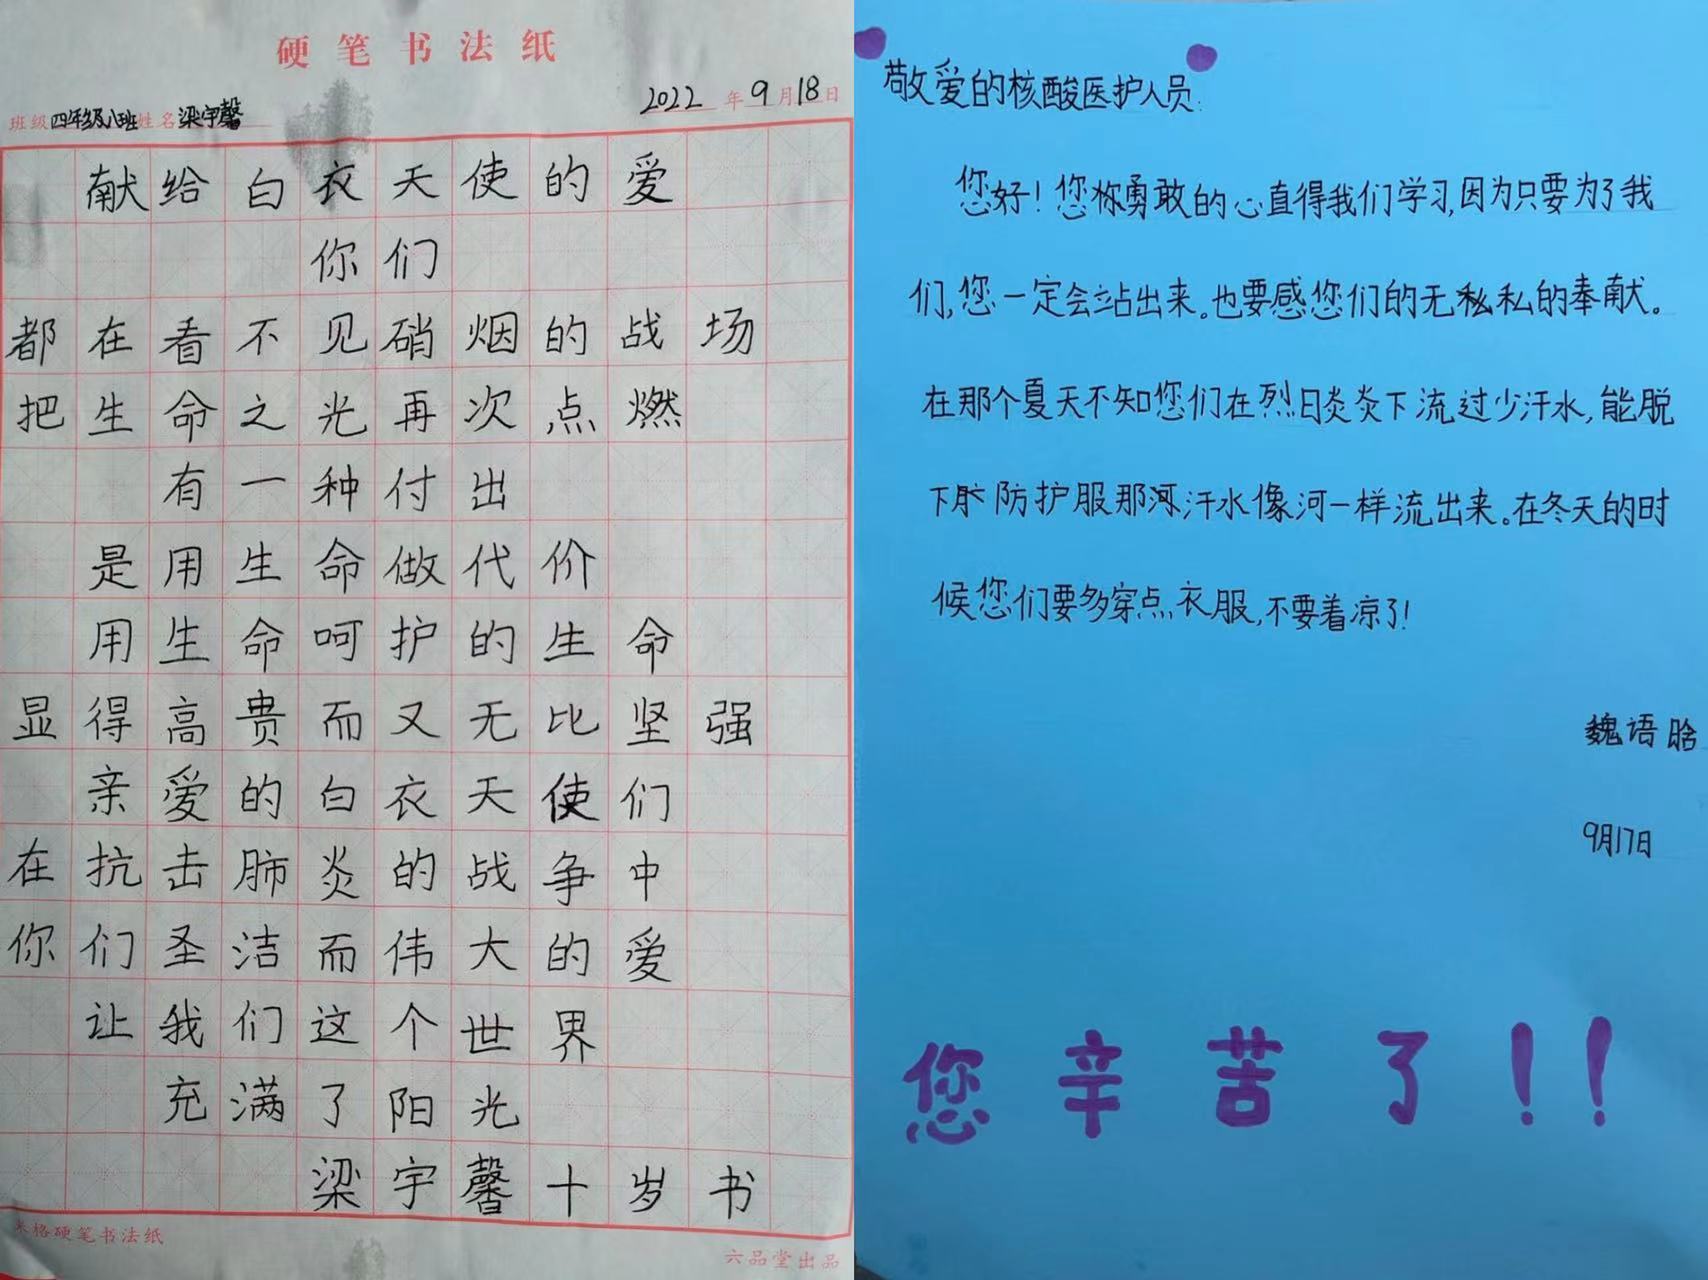 硬笔书法纸
班级四年级八班姓名梁宇馨 2022年9月18日
献给白衣天使的爱
你们
都在看不见硝烟的战场
把生命之光再次点燃
有一种付出
是用生命做代价
用生命呵护的生命
显得高贵而又无比坚强
亲爱的白衣天使们
在抗击肺炎的战争中
你们圣洁而伟大的爱
让我们这个世界
充满了阳光
梁宇馨十岁书
米格硬笔书法纸
六品堂出品
敬爱的核酸医护人员:
您好!您你勇敢的心直得我们学习,因为只要为了我
们,您一定会站出来。也要感您们的无私私的奉献。
在那个夏天不知您们在烈日炎炎下流过少汗水,能脱
下防护服那汗水像河一样流出来。在冬天的时
候您们要多穿点衣服,不要着凉了!
魏语晗
9月17日
您辛苦了!!